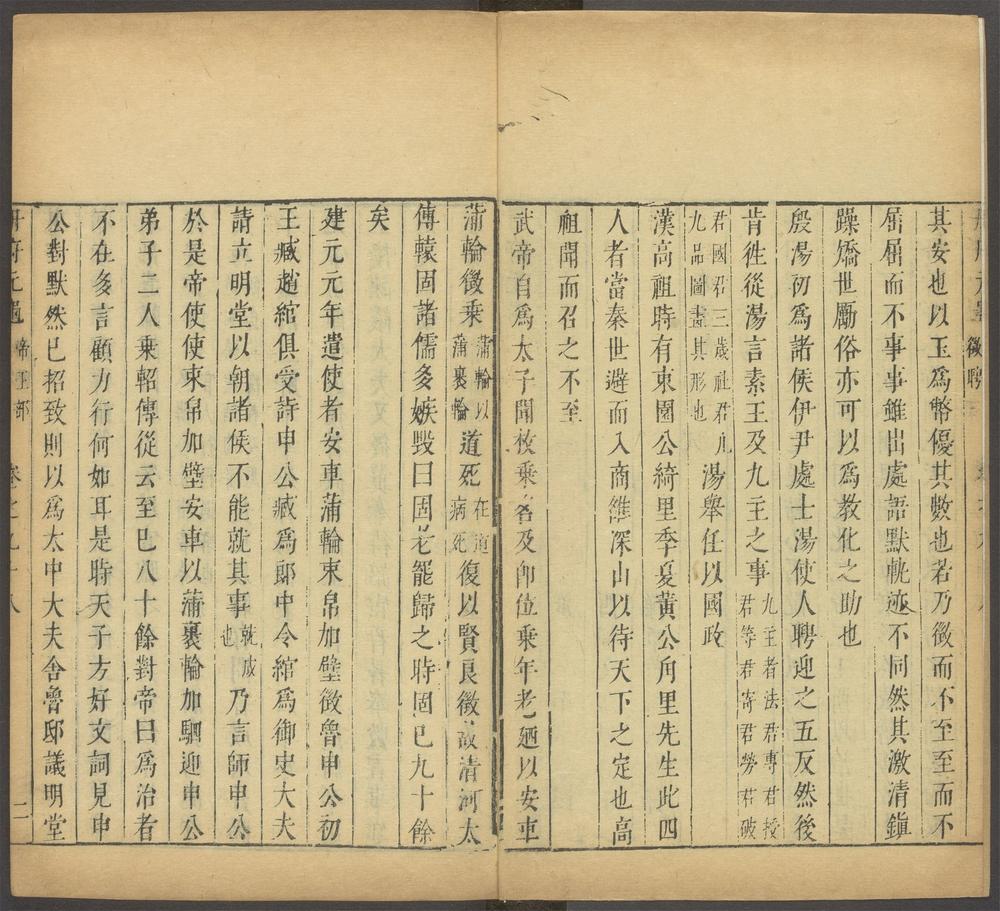 徵聘
其安也以玉爲幣優其數也若乃徵而不至至而不
屈屈而不事事雖出處語默軌迹不同然其激清鎭
躁矯世勵俗亦可以爲教化之助也
殷湯初爲諸侯伊尹處士湯使人聘迎之五反然後
肯徃從湯言素王及九主之事九主者法君專君授君勞君等君寄君破君國君三歲社君凡九品圖畫其形也湯舉任以國政
漢高祖時有東園公綺里季夏黃公角里先生此四
人者當秦世避而入商雒深山以待天下之定也高
祖聞而召之不至
武帝自爲太子聞枚乘名及卽位乘年老廼以安車
蒲輪徵乘蒲輪以蒲裹輪道死在道病死復以賢良徵故清河太
傅轅固諸儒多嫉毀曰固老罷歸之時固已九十餘
矣
建元元年遣使者安車蒲輪束帛加璧徵魯申公初
王臧趙綰俱受詩申公臧爲郎中令綰爲御史大夫
請立明堂以朝諸侯不能就其事就成也乃言師申公
於是帝使使束帛加璧安車以蒲裹輪加駟迎申公
弟子二人乘軺傳從云至已八十餘對帝曰爲治者
不在多言顧力行何如耳是時天子方好文詞見申
公對默然已招致則以爲太中大夫舍魯邸議明堂
冊府元龜 帝王部 卷之九十八 二